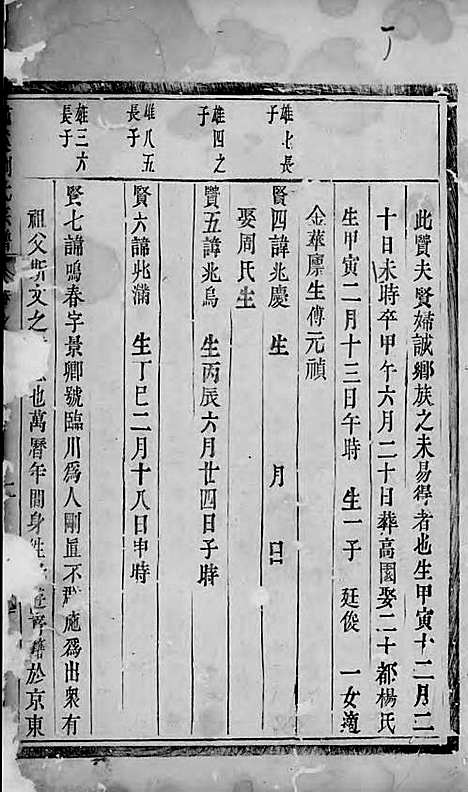 此贊夫賢婦誠鄉族之未易得者也生甲寅十二月二
十日未時卒甲午六月二十日葬高園娶二十都楊氏
生甲寅二月十三日午時 生一子 廷俊 一女適
金華廩生傅元禎
雄七長子
賢四諱兆慶 生 月 日
娶周氏生
雄四之子
賢五諱兆烏 生丙辰六月廿四日子時
雄八五長子
賢六諱兆滿 生丁巳二月十八日申時
雄三六長子
賢七諱鳴春字景卿號臨川為人剛直不 施為出衆有
祖父斯文之 也萬曆年間身 於京東